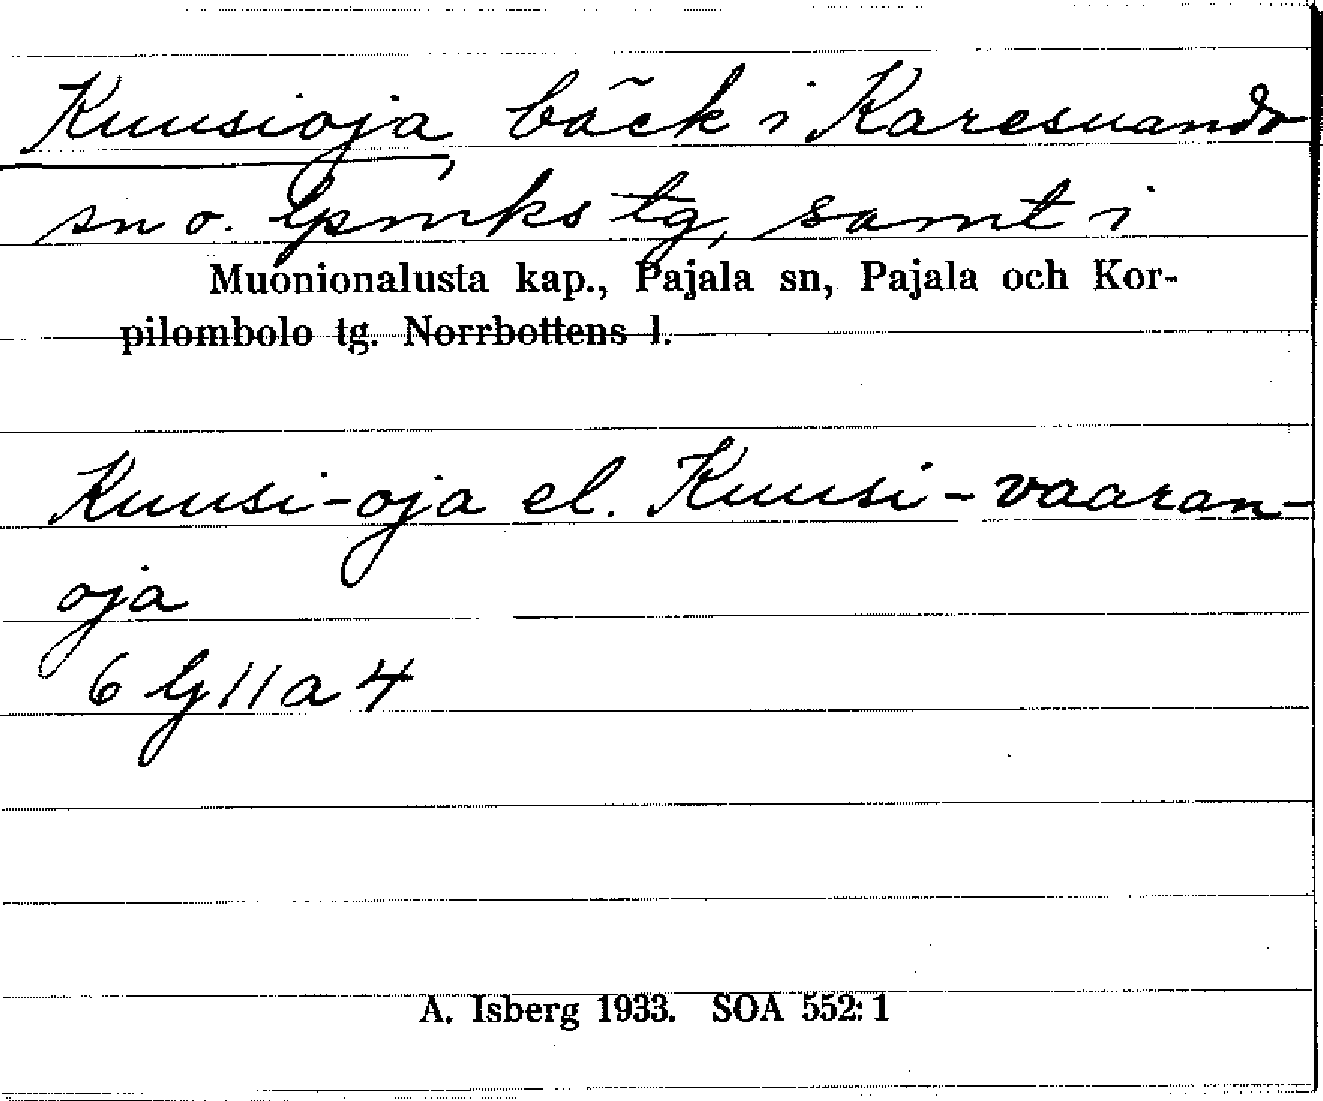 Kuusioja, bäck i Karesuando
sn o. lpmks tg, samt i
Muonionalusta kap., Pajala sn, Pajala och Kor-
pilombolo tg. Norrbottens l.
Kuusi-oja el. Kuusi-vaaran-
oja
6 g 11 a 4
A. Isberg 1933. SOA 552:1